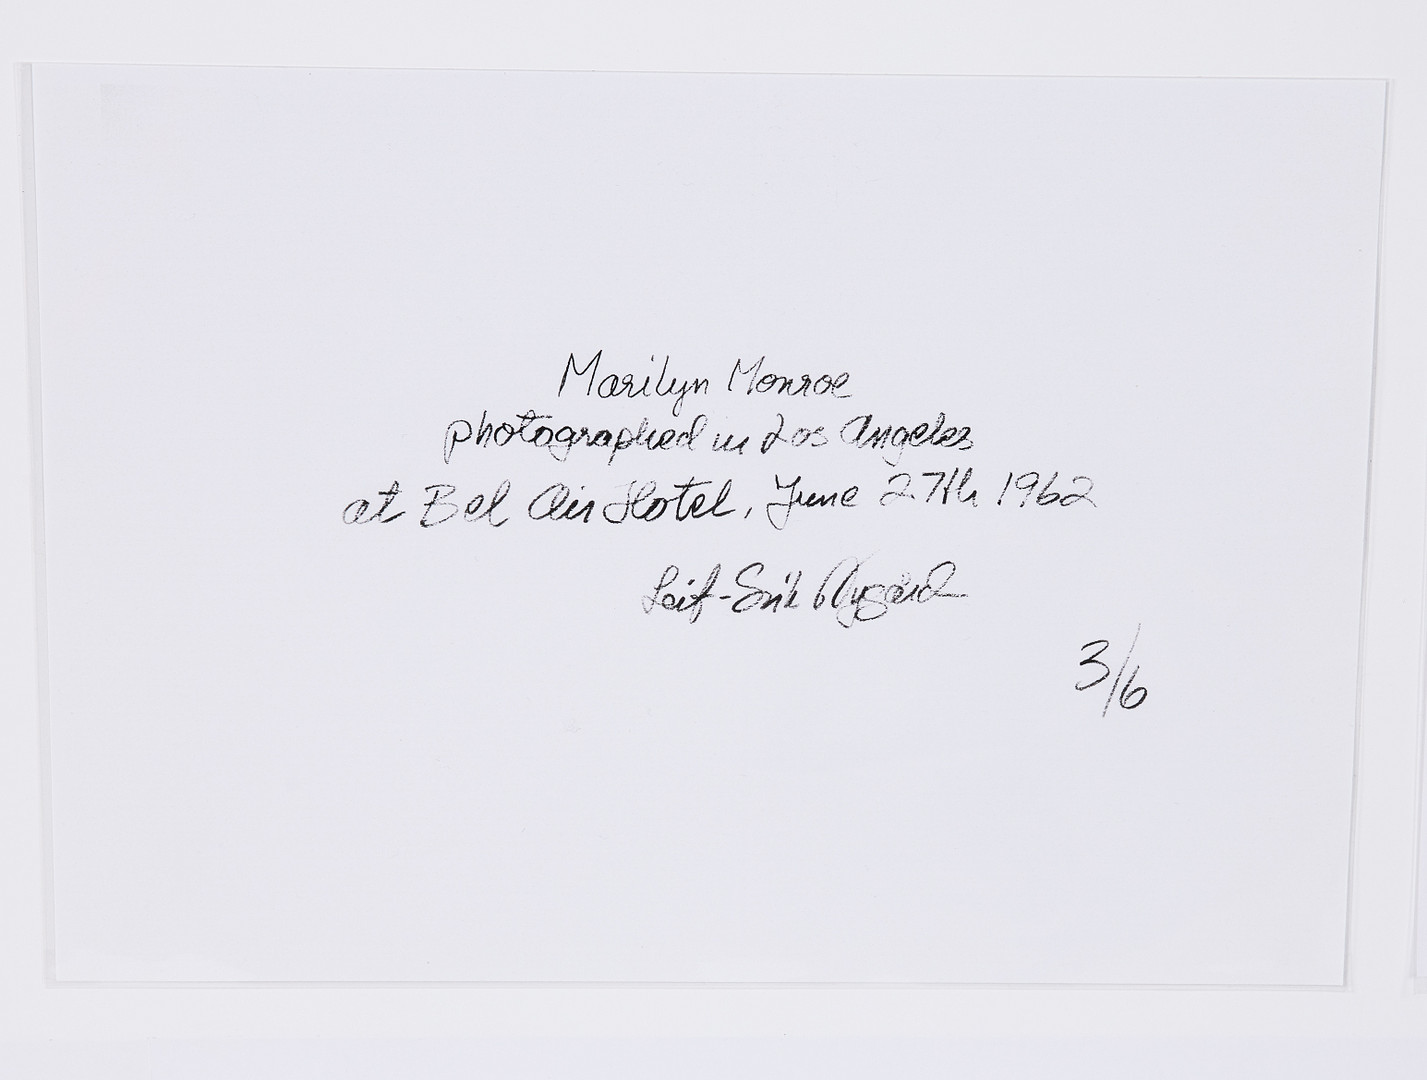 Marilyn Monroe
photographed in Los Angeles
at Bel Air Hotel, June 27th 1962
Leif-Erik Nygård
3/6